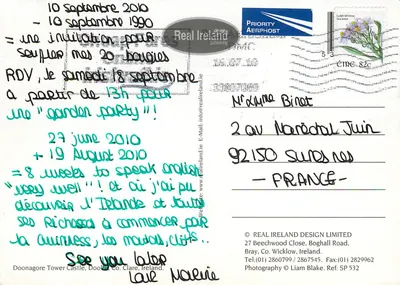 10 septembre 2010
- 10 septembre 1990
= une invitation pour
souffler mes 20 bougies
RDV, le samedi 18 septembre
à partir de 13h pour
une "garden party"!
27 june 2010
→ 19 August 2010
= 8 weeks to speak english
"very well"! et où j'ai pu
découvrir l'Irlande et toutes
ses richesses à commencer par
la Guinness, les moutons, cliffs...
See you later
Love
Doonagore Tower Castle, Doolin, Co. Clare, Ireland.
Real Ireland
E-Mail: info@realireland.ie
PRIORITY
AERPHOST
16.07.10
ÉIRE 82c
Mr & Mme Binet
2 av Maréchal Juin
92150 Suresnes
- FRANCE -
© REAL IRELAND DESIGN LIMITED
27 Beechwood Close, Boghall Road,
Bray, Co. Wicklow, Ireland.
Tel:(01) 2860799 / 2867545. Fax:(01) 2829962
Photography © Liam Blake. Ref: SP 532